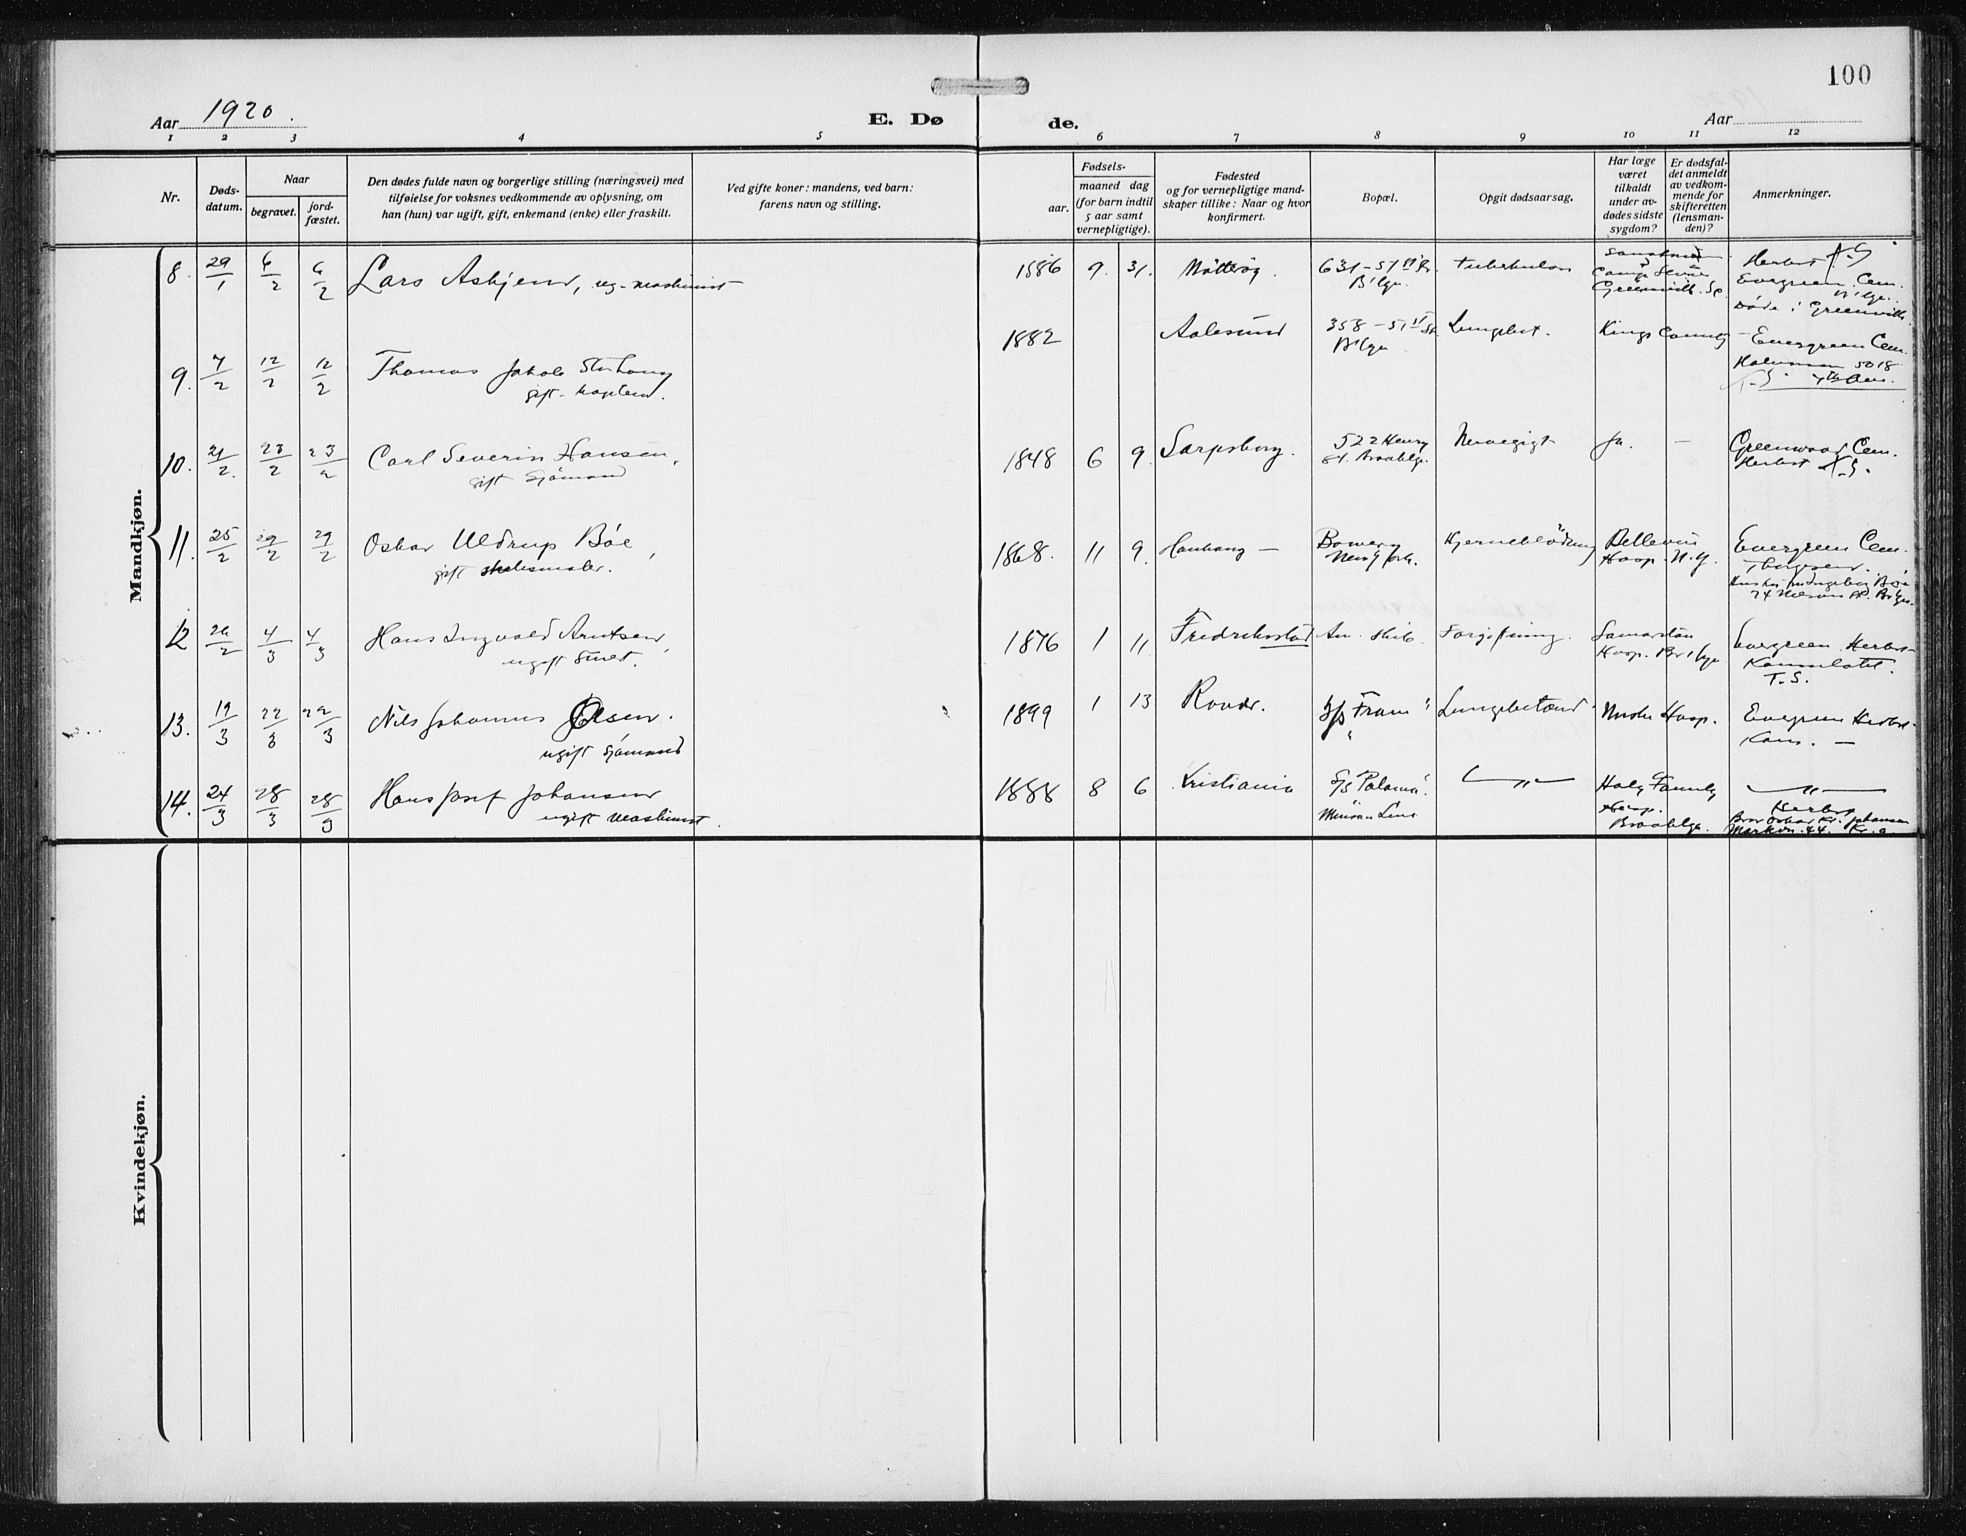 100
Aar 1920. E. Dø de. Aar
1 2 3 4 5 6 7 8 9 10 11 12
Nr.
Døds-
datum.
Naar
begravet.
jord-
fæstet.
Den dødes fulde navn og borgerlige stilling (næringsvei) med
tilføielse for voksnes vedkommende av oplysning, om
han (hun) var ugift, gift, enkemand (enke) eller fraskilt.
Ved gifte koner: mandens, ved barn:
farens navn og stilling.
Fødsels-
aar.
maaned dag
(for barn indtil
5 aar samt
vernepligtige).
Fødested
og for vernepligtige mand-
skaper tillike: Naar og hvor
konfirmert.
Bopæl.
Opgit dødsaarsag.
Har læge
været
tilkaldt
under av-
dødes sidste
sygdom?
Er dødsfal-
det anmeldt
av vedkom-
mende for
skifteretten
(lensman-
den)?
Anmerkninger.
Mandkjøn.
8. 29/1 6/2 6/2 Lars Asbjend, ug. maskinist 1886 9. 31. 631-57 St.
B'lyn.
Tuberkulos
Camp
Greenville. Sc.
Herbst
Evergreen Cem.
B'lyn.
Døde i Greenville.
9. 7/2 12/2 12/2 Thomas Jakob
gift. kaptein.
1882 Aalesund 358-51 St.
B'lyn
Lungebet. Kings County -
Evergreen Cem.
Halvorsen 5018
7th Ave.
10. 21/2 23/2 23/2 Carl Severin Hansen,
gift Sjömand
1848 6 9. Sarpsborg. 522 Henry
St. Brooklyn.
Nervegigt Ja. -
Greenwood Cem.
Herbst
11. 25/2 29/2 29/2 Oskar Uldrup Bóe,
gift
1868. 11 9. - Bowery
New York.
Hjerneblödning Bellevue
Hosp. N.Y.
Evergreen Cem.
Thorgesen.
12 29/2 4/3 4/3 Hans Ingvald Arntsen,
ugift
1876 1 11. Fredrikstad Am. Skib. Forgiftning. Samaritan
Hosp. Br'klyn
Evergreen Herbst-
Konsulatet.
T.S.
13. 19/3 22/3 22/3 Nils Johannes Olsen.
ugift Sjömand
1899 1 13 S/S "Fram" Lungebetænd. Hosp.
Evergreen Herbst-
Kons. -
14. 24/3 28/3 28/3 Hans Josef Johansen
ugift maskinist.
1888 8 6 Kristiania S/S
Munson Line
- " - Holy Family
Hosp.
Brooklyn.
- " -
Herbst
Bror Oskar Kr. Johansen
Markvn. 44. Kr.a
Kvindekjøn.